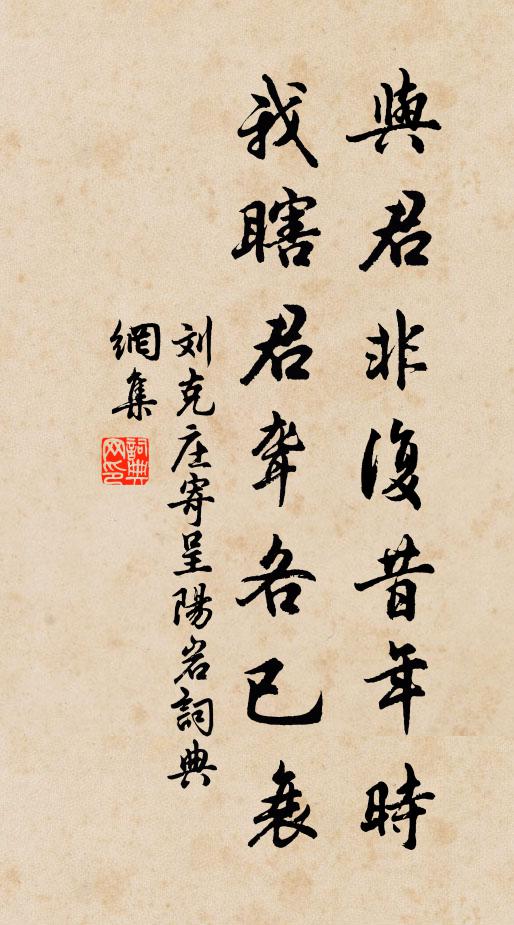 與君非復昔年時
我瞎君聋各已衰
刘克庄寄呈陽岩詞典
網集
詞典
网印